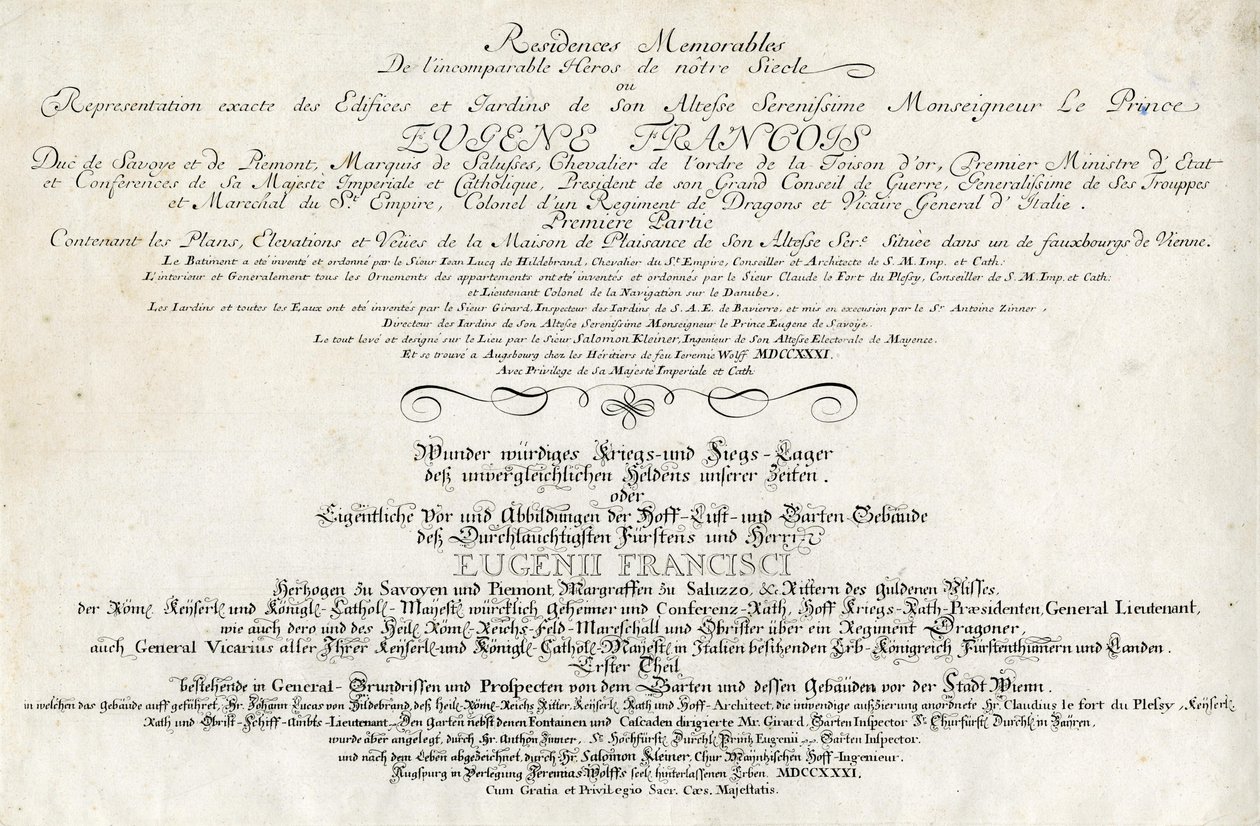 Residences Memorables
De l'incomparable Heros de nôtre Siecle
ou
Representation exacte des Edifices et Jardins de Son Altesse Serenissime Monseigneur Le Prince
EUGENE FRANCOIS
Duc de Savoye et de Piemont, Marquis de Salusses, Chevalier de l'ordre de la Toison d'or, Premier Ministre d'Etat
et Conferences de Sa Majesté Imperiale et Catholique, President de son Grand Conseil de Guerre, Generalissime de Ses Trouppes
et Marechal du St. Empire, Colonel d'un Regiment de Dragons et Vicaire General d'Italie.
Premiere Partie
Contenant les Plans, Elevations et Veües de la Maison de Plaisance de Son Altesse Sere. Située dans un de fauxbourgs de Vienne.
Le Batiment a eté inventé et ordonné par le Sieur Iean Lucq de Hildebrand, Chevalier du St. Empire, Conseiller et Architecte de S. M. Imp. et Cath:
L'interieur et Generalement tous les Ornements des appartements ont eté inventés et ordonnés par le Sieur Claude le Fort du Plessy, Conseiller de S. M. Imp. et Cath:
et Lieutenant Colonel de la Navigation sur le Danube.
Les Iardins et toutes les Eaux ont eté inventés par le Sieur Girard, Inspecteur des Iardins de S. A. E. de Bavierre, et mis en execution par le Sr. Antoine Zinner,
Directeur des Iardins de Son Altesse Serenissime Monseigneur le Prince Eugene de Savoije.
Le tout levé et designé sur le Lieu par le Sieur Salomon Kleiner, Ingenieur de Son Altesse Electorale de Mayence.
Et se trouvé a Augsbourg chez les Héritiers de feu Ieremie Wolff MDCCXXXI.
Avec Privilege de Sa Majesté Imperiale et Cath:
Wunder würdiges Kriegs- und Siegs-Lager
deß unvergleichlichen Heldens unserer Zeiten.
oder
Eigentliche Vor und Abbildungen der Hoff-Lust- und Garten-Gebäude
deß Durchlauchtigsten Fürstens und Herrn
EUGENII FRANCISCI
Hertzogen zu Savoyen und Piemont, Marggraffen zu Saluzzo, &c. Rittern des guldenen Vlusses,
der Röml. Keyserl. und Königl-Cathol-Mayest. würcklich geheimer und Conferenz-Rath, Hoff Kriegs-Rath-Præsidenten, General Lieutenant,
wie auch dero und des Heil. Röml-Reichs-Feld-Mareschall und Obrister über ein Regiment Dragoner,
auch General Vicarius aller Ihrer Keyserl- und Königl-Cathol-Mayest. in Italien besitzenden Erb-Königreich Fürstenthümern und Landen.
Erster Theil
bestehende in General-Grundrissen und Prospecten von dem Garten und dessen Gebäuden vor der Stadt Wienn.
in welchen das Gebäude auff geführet, Hr. Johann Lucas von Hildebrand, deß Heil-Röm-Reichs Ritter, Keyserl. Rath und Hoff-Architect, die inwendige außzierung anordnete Hr. Claudius le fort du Plessy, Keyserl.
Rath und Obrist-Schiff-Ambts-Lieutenant. Den Garten nebst denen Fontainen und Cascaden dirigierte Mr. Girard, Garten Inspector Sr. Churfürstl. Durchl. in Bäyren,
wurde aber angelegt, durch Hr. Anthon Zinner, Sr. Hochfürstl. Durchl. Printz Eugenii Garten Inspector.
und nach dem Leben abgezeichnet, durch Hr. Salomon Kleiner, Chur Mayntzischen Hoff-Ingenieur.
Augspurg in Verlegung Jeremias Wolffs seel. hinterlassenen Erben. MDCCXXXI.
Cum Gratia et Privilegio Sacr. Cæs. Majestatis.